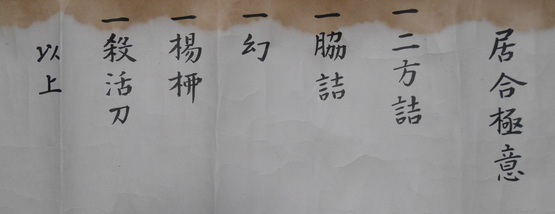 居合極意
一二方詰
一脇詰
一幻
一楊柙
一殺活刀
以上